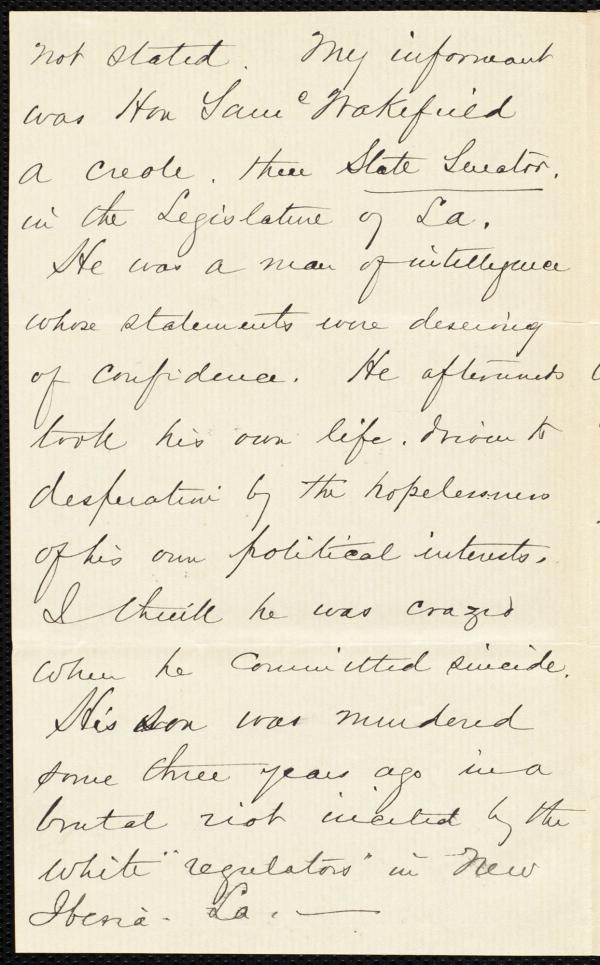 not stated. My informant
was Hon Sam<sup>e</sup> Wakefield
a creole. then State Senator.
in the Legislature of La.
He was a man of intelligence
whose statements were deserving
of confidence. He afterwards
took his own life. driven to
desperation by the hopelessness
of his own political interests.
I think he was crazed
when he committed suicide.
His son was murdered
some three years ago in a
brutal riot incited by the
white "regulators" in New
Iberia - La. —